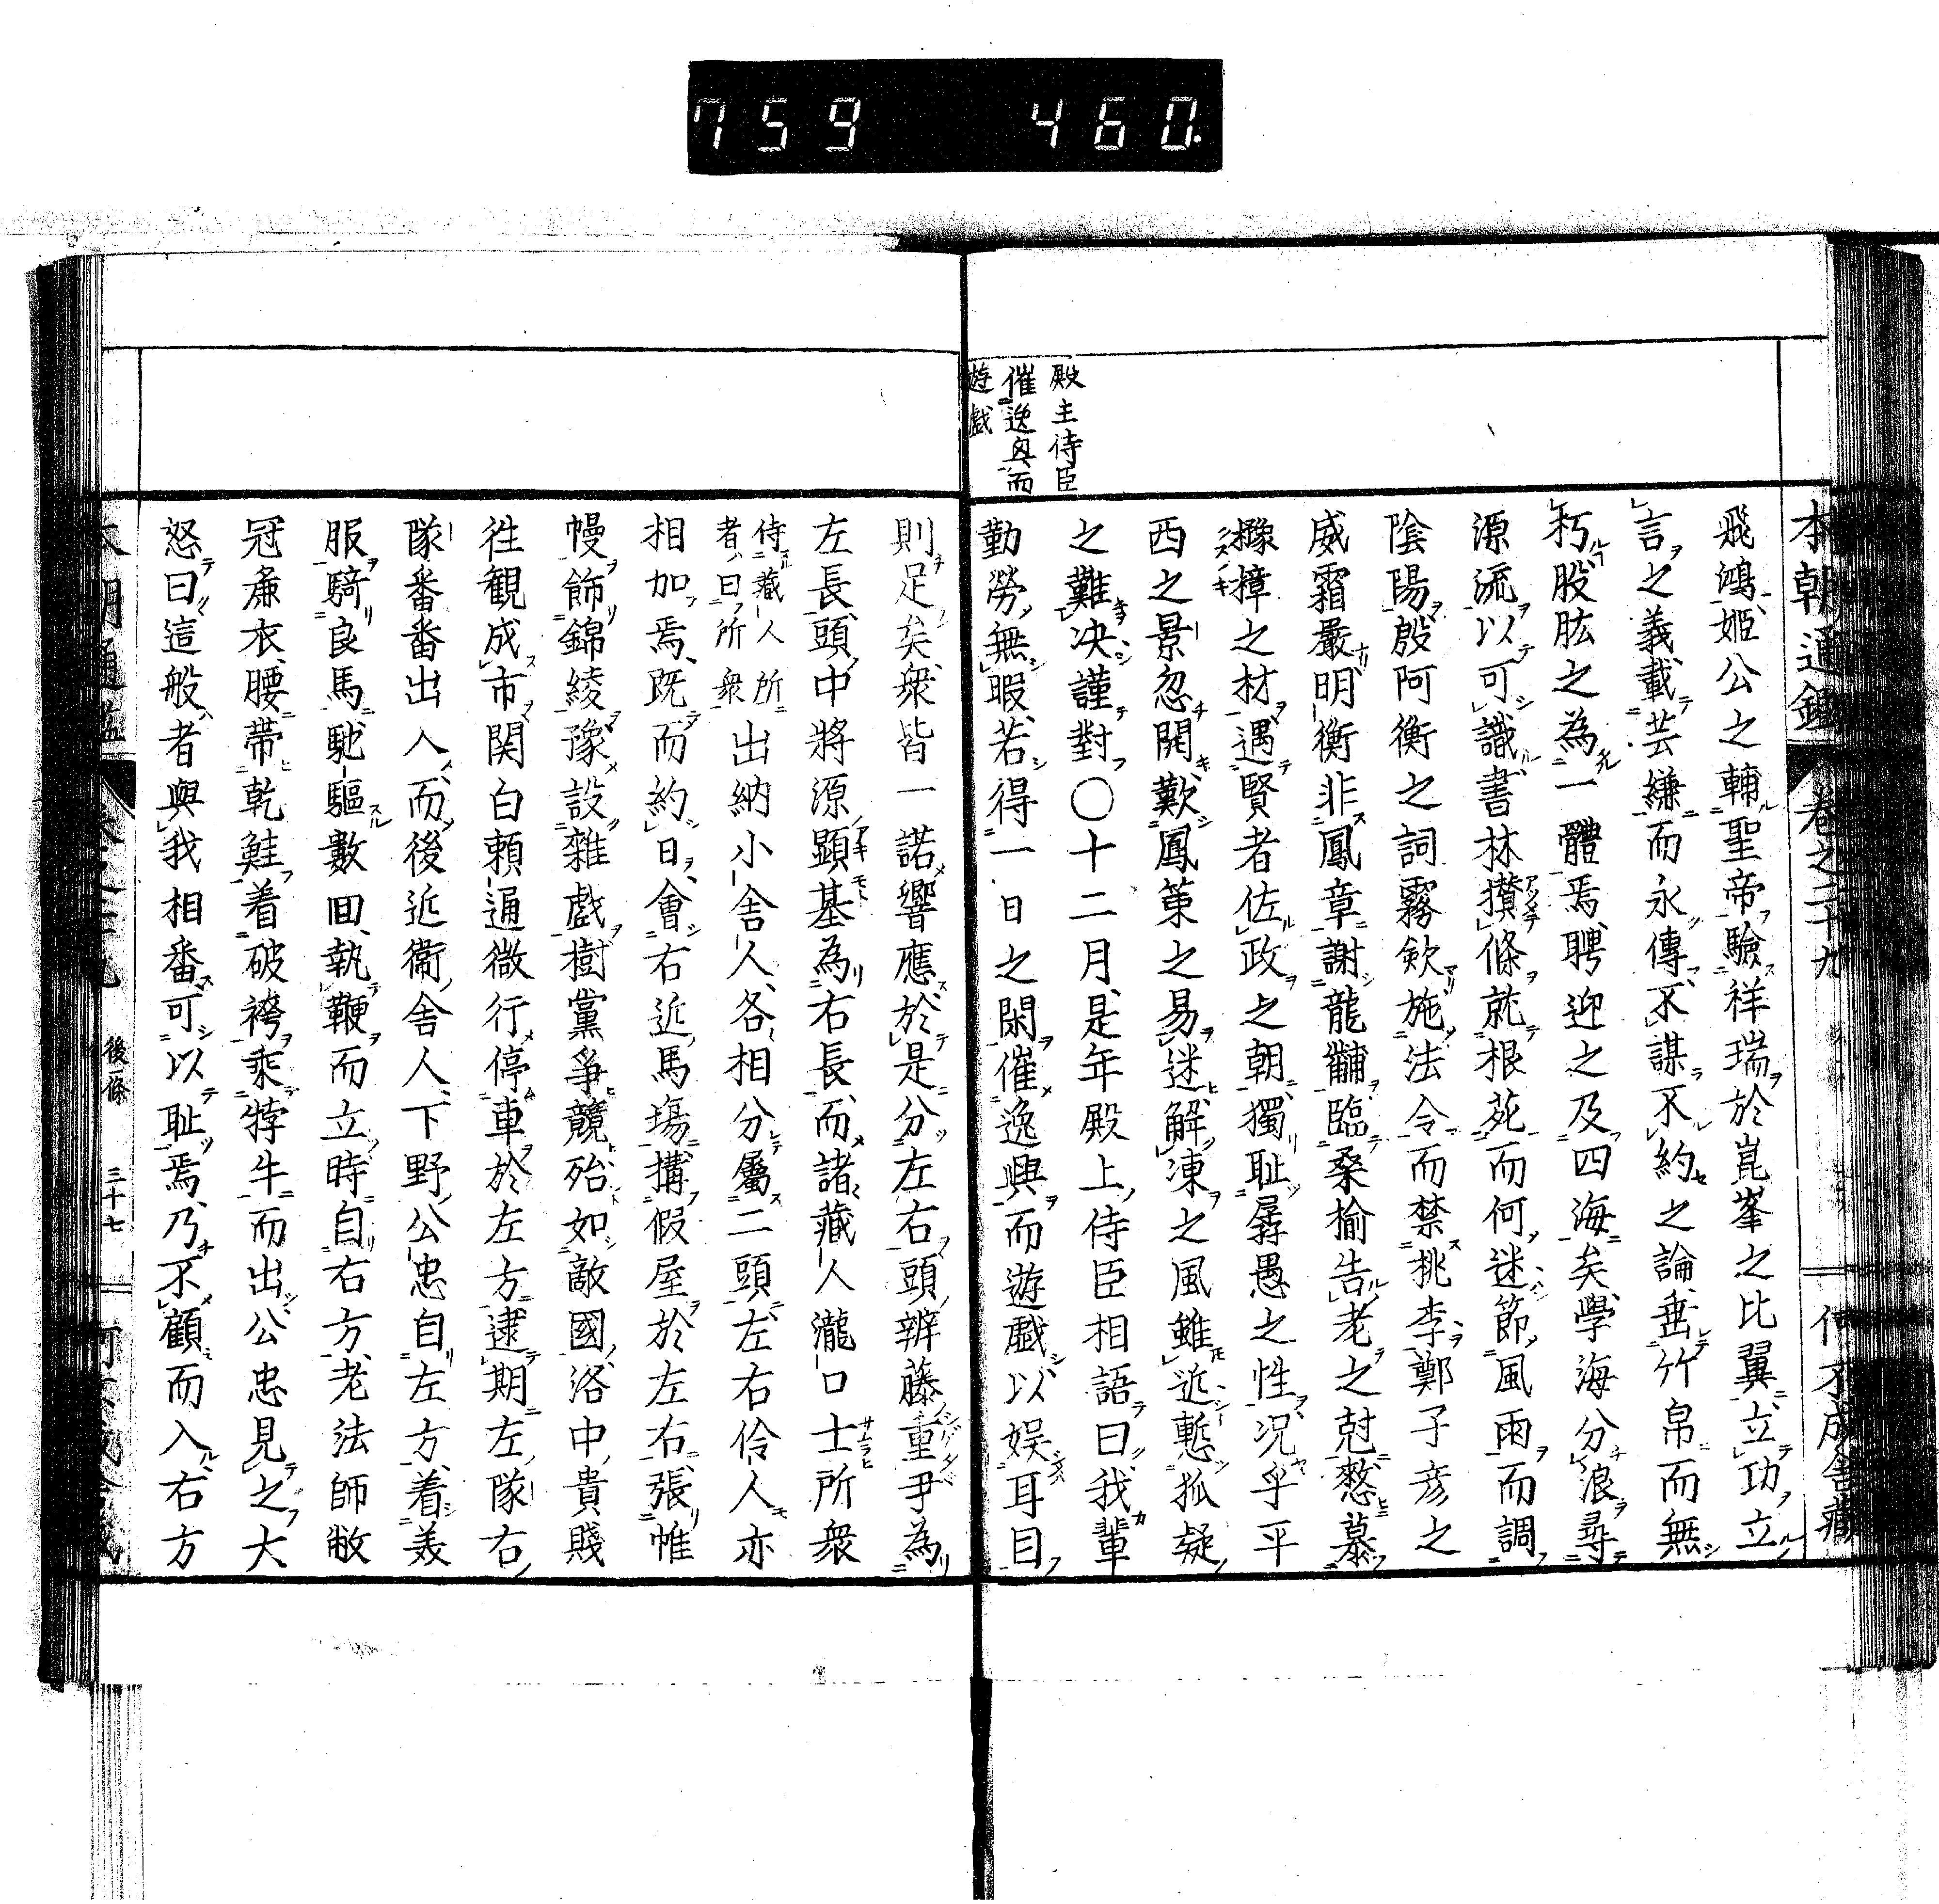 759 460.
本朝通鑑 卷之二十九 何不成舎藏
殿主侍臣
催逸興而
遊戲
飛鴻姬公之輔聖帝驗祥瑞於崑峯之比翼立功立
言之義載芸縑而永傳不謀不約之論垂竹帛而無
朽股肱之為一體焉聘迎之及四海矣學海分浪尋
源流以可識書林攢條就根菀而何迷節風雨而調
陰陽殷阿衡之詞霧欸施法令而禁桃李鄭子彥之
威霜嚴明衡非鳳章謝龍黼臨桑榆告老之愆憗慕
櫲樟之材遇賢者佐政之朝獨耻孱愚之性况乎平
西之景忽開歎鳳策之易迷解凍之風雖近慙狐疑
之難决謹對〇十二月是年殿上侍臣相語曰我輩
勤勞無暇若得一日之閑催逸興而遊戲以娱耳目
則足矣衆皆一諾響應於是分左右頭辨藤重尹為
左長頭中將源顯基為右長而諸藏人瀧口士所衆
侍藏人所
者曰所衆
出納小舎人各相分屬二頭左右伶人亦
相加焉既而約日會右近馬塲搆假屋於左右張帷
幔飾錦綾豫設雜戲樹黨爭競殆如敵國洛中貴賤
徃観成市関白賴通微行停車於左方逮期左隊右
隊番番出入而後近衞舎人下野公忠自左方着美
服騎良馬馳驅數囬執鞭而立時自右方老法師敝
冠麁衣腰帶乾鮭着破袴乘牸牛而出公忠見之大
怒曰這般者與我相番可以耻焉乃不顧而入右方
後一條 三十七